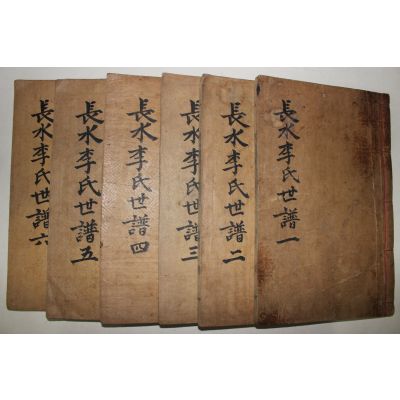 長水李氏世譜一
長水李氏世譜二
長水李氏世譜三
長水李氏世譜四
長水李氏世譜五
長水李氏世譜六